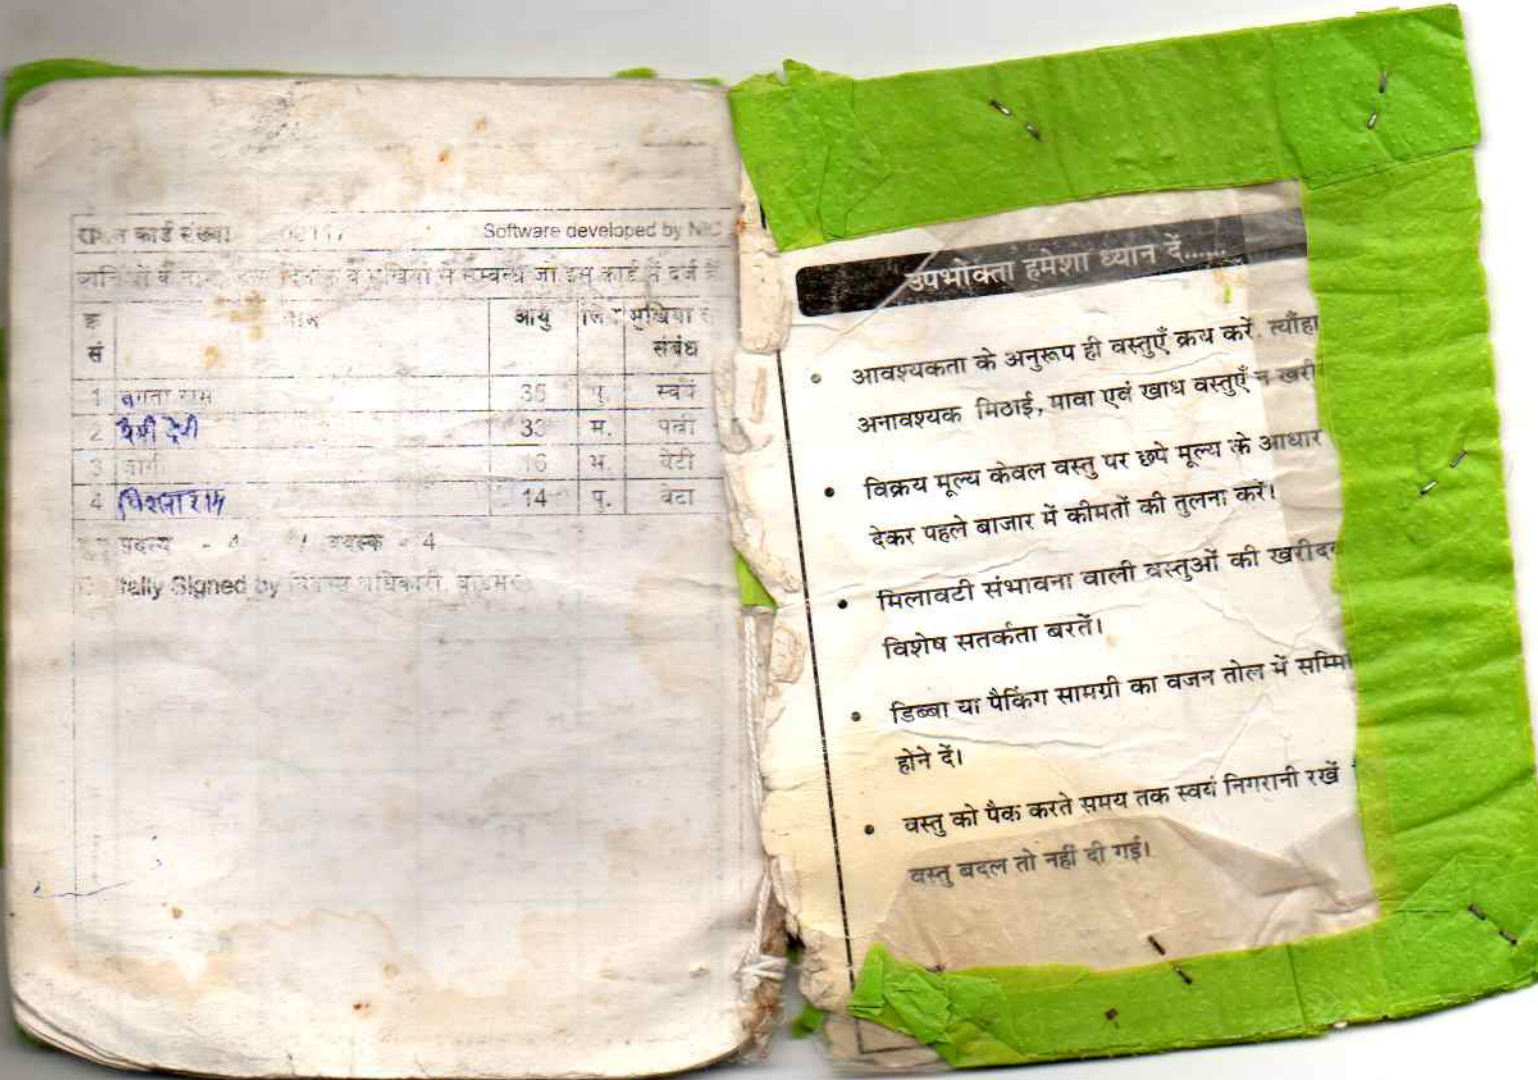 राशन कार्ड संख्या Software developed by NIC
व मुखिया से सम्बन्ध जो इस कार्ड में दर्ज हैं
क्र सं नाम आयु लिं मुखिया संबंध
1 राम 36 पु. स्वयं
2 देवी 33 म. पत्नी
3 16 म. बेटी
4 14 पु. बेटा
वयस्क - 4
Signed by अधिकारी, बाड़मेर
उपभोक्ता हमेशा ध्यान दें......
• आवश्यकता के अनुरूप ही वस्तुएँ क्रय करें. त्यौहा
अनावश्यक मिठाई, मावा एवं खाध वस्तुएँ न खरी
• विक्रय मूल्य केवल वस्तु पर छपे मूल्य के आधार
देकर पहले बाजार में कीमतों की तुलना करें।
• मिलावटी संभावना वाली वस्तुओं की खरीद
विशेष सतर्कता बरतें।
• डिब्बा या पैकिंग सामग्री का वजन तोल में सम्मि
होने दें।
• वस्तु को पैक करते समय तक स्वयं निगरानी रखें
वस्तु बदल तो नहीं दी गई।